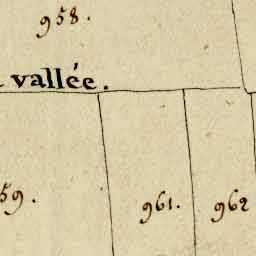 958.
vallée.
59.
961.
962